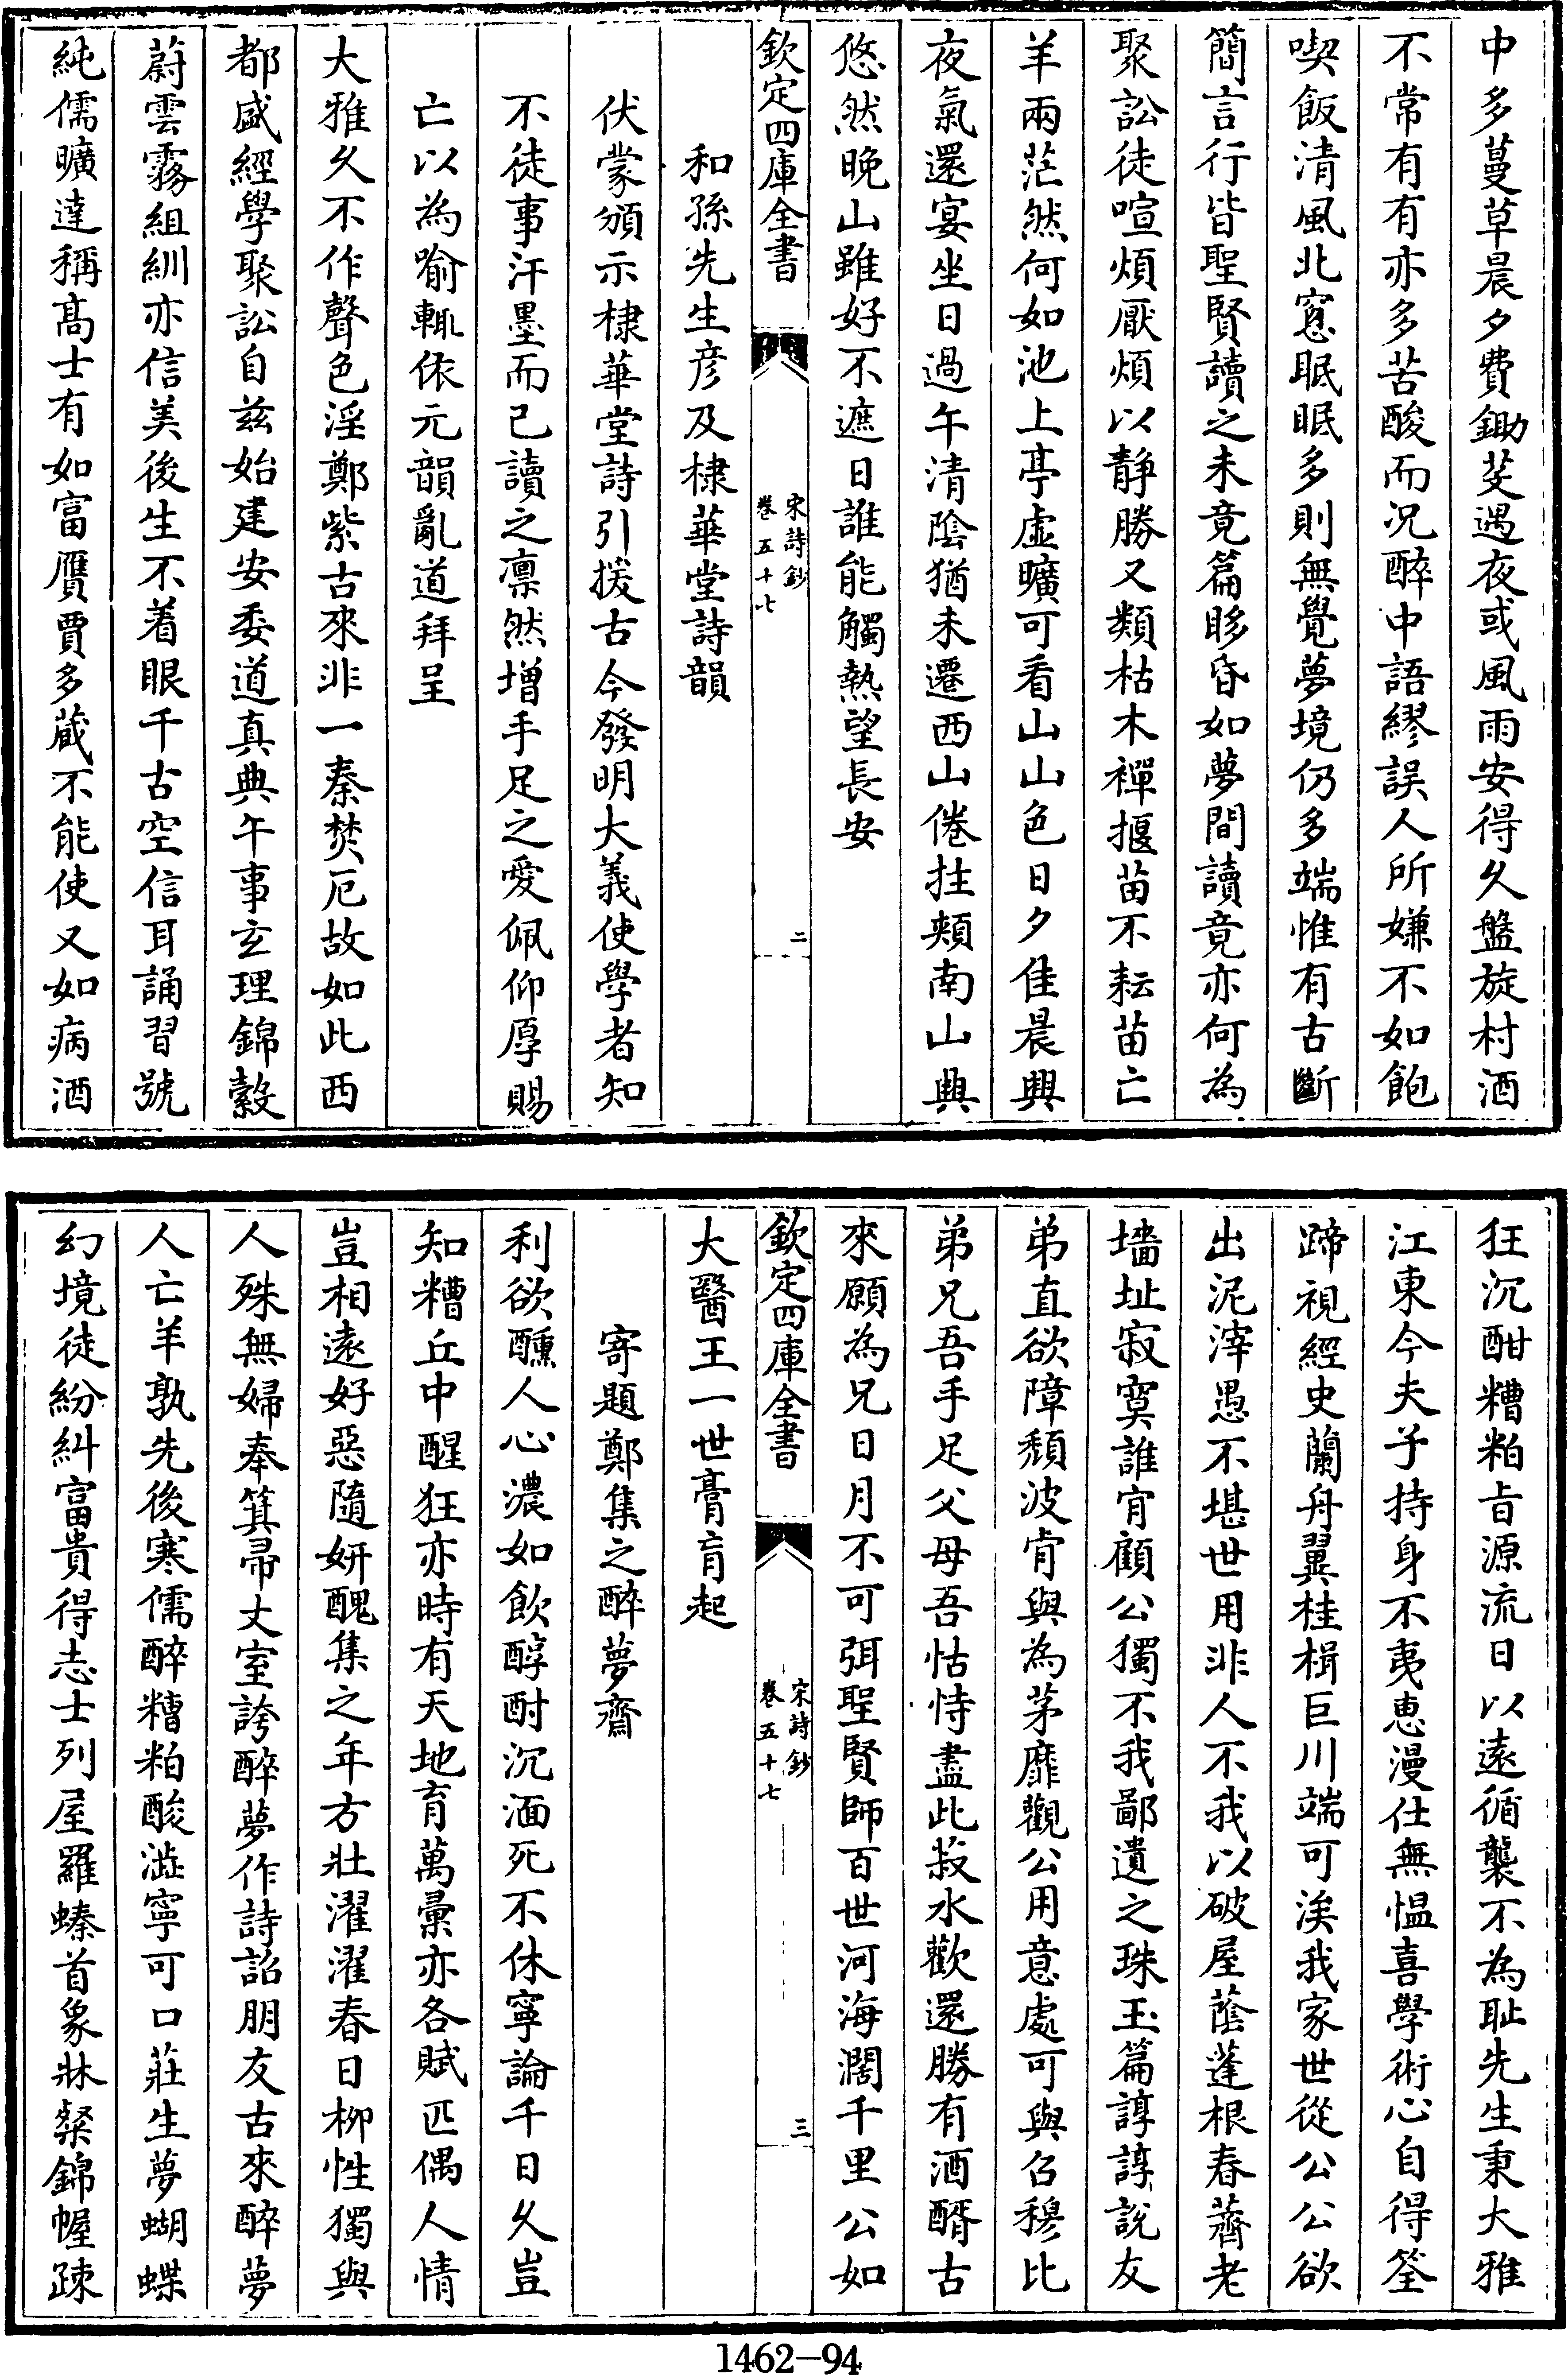 中多蔓草晨夕費鋤芟遇夜或風雨安得久盤旋村酒
不常有有亦多苦酸而况醉中語繆誤人所嫌不如飽
喫飯清風北窻眠眠多則無覺夢境仍多端惟有古斷
簡言行皆聖賢讀之未竟篇眵昏如夢間讀竟亦何為
聚訟徒喧煩厭煩以静勝又類枯木禪揠苗不耘苗亡
羊兩茫然何如池上亭虚曠可看山山色日夕佳晨興
夜氣還宴坐日過午清陰猶未遷西山倦拄頰南山興
悠然晚山雖好不遮日誰能觸熱望長安
欽定四庫全書
宋詩鈔
卷五十七
二
和孫先生彦及棣華堂詩韻
伏蒙頒示棣華堂詩引援古今發明大義使學者知
不徒事汗墨而已讀之凛然增手足之愛佩仰厚賜
亡以為喻輒依元韻亂道拜呈
大雅久不作聲色淫鄭紫古來非一秦焚厄故如此西
都盛經學聚訟自兹始建安委道真典午事玄理錦縠
蔚雲霧組紃亦信美後生不着眼千古空信耳誦習號
純儒曠達稱高士有如富贗賈多藏不能使又如病酒
狂沉酣糟粕㫖源流日以遠循襲不為恥先生秉大雅
江東今夫子持身不夷恵漫仕無愠喜學術心自得筌
蹄視經史蘭舟翼桂楫巨川端可涘我家世從公公欲
出泥滓愚不堪世用非人不我以破屋蔭蓬根春薺老
墻址寂寞誰肯顧公獨不我鄙遺之珠玉篇諄諄說友
弟直欲障頽波肯與為茅靡觀公用意處可與召穆比
弟兄吾手足父母吾怙恃盡此菽水歡還勝有酒醑古
來願為兄日月不可弭聖賢師百世河海濶千里公如
欽定四庫全書
宋詩鈔
卷五十七
三
大醫王一世膏肓起
寄題鄭集之醉夢齋
利欲醺人心濃如飲醇酎沉湎死不休寧論千日久豈
知糟丘中醒狂亦時有天地育萬彚亦各賦匹偶人情
豈相遠好惡隨妍醜集之年方壯濯濯春日柳性獨與
人殊無婦奉箕帚丈室誇醉夢作詩詔朋友古來醉夢
人亡羊孰先後寒儒醉糟粕酸澁寧可口莊生夢蝴蝶
幻境徒紛糾富貴得志士列屋羅螓首象牀粲錦幄疎
1462-94